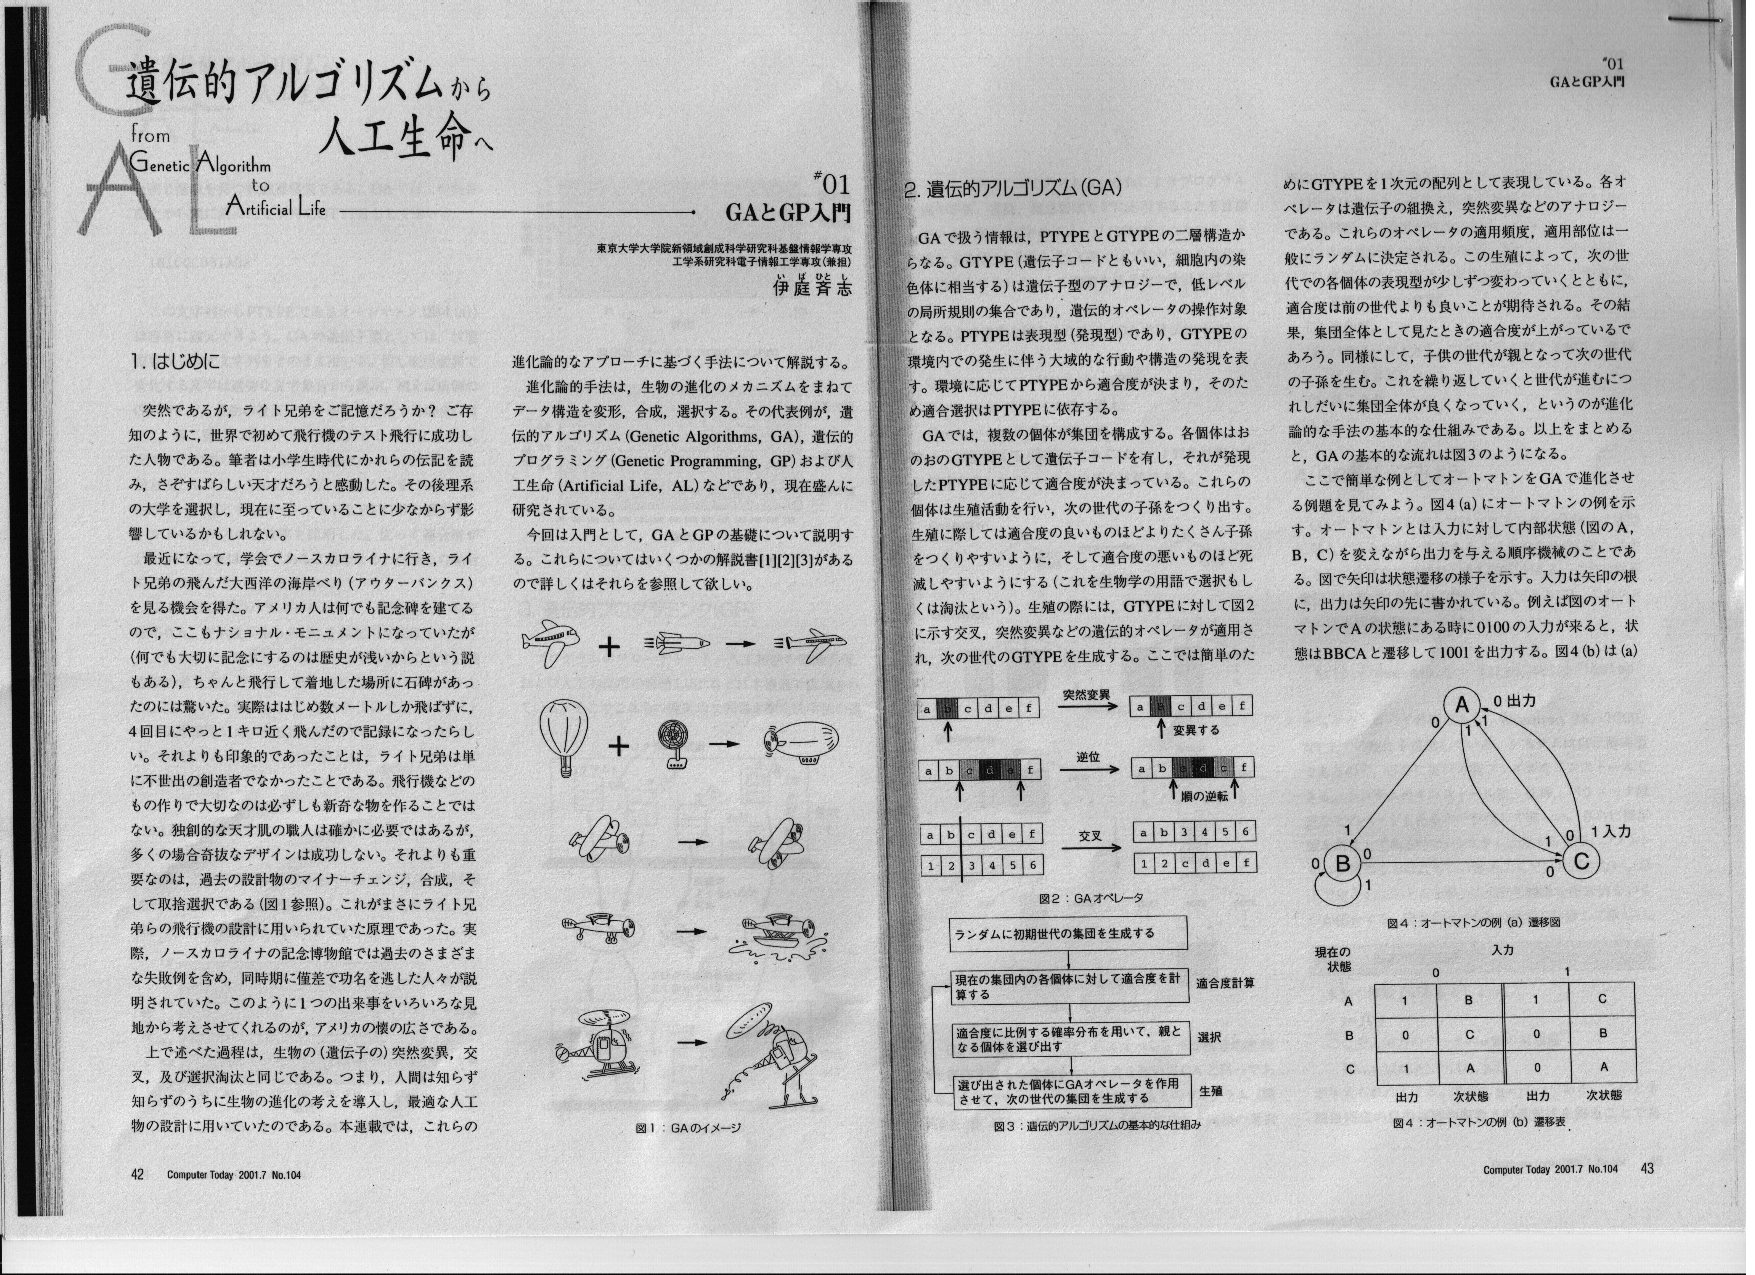 GA
AL
遺伝的アルゴリズムから
人工生命へ
from
Genetic Algorithm
to
Artificial Life
#01
GAとGP入門
東京大学大学院新領域創成科学研究科基盤情報学専攻
工学系研究科電子情報工学専攻(兼担)
いばひとし
伊庭斉志
1. はじめに
突然であるが，ライト兄弟をご記憶だろうか？ ご存
知のように，世界で初めて飛行機のテスト飛行に成功し
た人物である。筆者は小学生時代にかれらの伝記を読
み，さぞすばらしい天才だろうと感動した。その後理系
の大学を選択し，現在に至っていることに少なからず影
響しているかもしれない。
最近になって，学会でノースカロライナに行き，ライ
ト兄弟の飛んだ大西洋の海岸べり（アウターバンクス）
を見る機会を得た。アメリカ人は何でも記念碑を建てる
ので，ここもナショナル・モニュメントになっていたが
（何でも大切に記念にするのは歴史が浅いからという説
もある），ちゃんと飛行して着地した場所に石碑があっ
たのには驚いた。実際ははじめ数メートルしか飛ばずに，
4回目にやっと1キロ近く飛んだので記録になったらし
い。それよりも印象的であったことは，ライト兄弟は単
に不世出の創造者でなかったことである。飛行機などの
もの作りで大切なのは必ずしも新奇な物を作ることでは
ない。独創的な天才肌の職人は確かに必要ではあるが，
多くの場合奇抜なデザインは成功しない。それよりも重
要なのは，過去の設計物のマイナーチェンジ，合成，そ
して取捨選択である（図1参照）。これがまさにライト兄
弟らの飛行機の設計に用いられていた原理であった。実
際，ノースカロライナの記念博物館では過去のさまざま
な失敗例を含め，同時期に僅差で功名を逃した人々が説
明されていた。このように1つの出来事をいろいろな見
地から考えさせてくれるのが，アメリカの懐の広さである。
上で述べた過程は，生物の（遺伝子の）突然変異，交
叉，及び選択淘汰と同じである。つまり，人間は知らず
知らずのうちに生物の進化の考えを導入し，最適な人工
物の設計に用いていたのである。本連載では，これらの
進化論的なアプローチに基づく手法について解説する。
進化論的手法は，生物の進化のメカニズムをまねて
データ構造を変形，合成，選択する。その代表例が，遺
伝的アルゴリズム（Genetic Algorithms, GA），遺伝的
プログラミング（Genetic Programming, GP）および人
工生命（Artificial Life, AL）などであり，現在盛んに
研究されている。
今回は入門として，GAとGPの基礎について説明す
る。これらについてはいくつかの解説書[1][2][3]がある
ので詳しくはそれらを参照して欲しい。
+ →
+ →
→
→
→
図1：GAのイメージ
42 Computer Today 2001.7 No.104
#01
GAとGP入門
2. 遺伝的アルゴリズム（GA）
GAで扱う情報は，PTYPEとGTYPEの二層構造か
らなる。GTYPE（遺伝子コードともいい，細胞内の染
色体に相当する）は遺伝子型のアナロジーで，低レベル
の局所規則の集合であり，遺伝的オペレータの操作対象
となる。PTYPEは表現型（発現型）であり，GTYPEの
環境内での発生に伴う大域的な行動や構造の発現を表
す。環境に応じてPTYPEから適合度が決まり，そのた
め適合選択はPTYPEに依存する。
GAでは，複数の個体が集団を構成する。各個体はお
のおのGTYPEとして遺伝子コードを有し，それが発現
したPTYPEに応じて適合度が決まっている。これらの
個体は生殖活動を行い，次の世代の子孫をつくり出す。
生殖に際しては適合度の良いものほどよりたくさん子孫
をつくりやすいように，そして適合度の悪いものほど死
滅しやすいようにする（これを生物学の用語で選択もし
くは淘汰という）。生殖の際には，GTYPEに対して図2
に示す交叉，突然変異などの遺伝的オペレータが適用さ
れ，次の世代のGTYPEを生成する。ここでは簡単のた
a b c d e f 突然変異 a c d e f
変異する
a b c d e f 逆位 a b e d c f
順の逆転
a b c d e f 交叉 a b 3 4 5 6
1 2 3 4 5 6 1 2 c d e f
図2：GAオペレータ
ランダムに初期世代の集団を生成する
現在の集団内の各個体に対して適合度を計
算する
適合度計算
適合度に比例する確率分布を用いて、親と
なる個体を選び出す
選択
選び出された個体にGAオペレータを作用
させて、次の世代の集団を生成する
生殖
図3：遺伝的アルゴリズムの基本的な仕組み
めにGTYPEを1次元の配列として表現している。各オ
ペレータは遺伝子の組換え，突然変異などのアナロジー
である。これらのオペレータの適用頻度，適用部位は一
般にランダムに決定される。この生殖によって，次の世
代での各個体の表現型が少しずつ変わっていくとともに，
適合度は前の世代よりも良いことが期待される。その結
果，集団全体として見たときの適合度が上がっているで
あろう。同様にして，子供の世代が親となって次の世代
の子孫を生む。これを繰り返していくと世代が進むにつ
れしだいに集団全体が良くなっていく，というのが進化
論的な手法の基本的な仕組みである。以上をまとめる
と，GAの基本的な流れは図3のようになる。
ここで簡単な例としてオートマトンをGAで進化させ
る例題を見てみよう。図4（a）にオートマトンの例を示
す。オートマトンとは入力に対して内部状態（図のA，
B，C）を変えながら出力を与える順序機械のことであ
る。図で矢印は状態遷移の様子を示す。入力は矢印の根
に，出力は矢印の先に書かれている。例えば図のオート
マトンでAの状態にある時に0100の入力が来ると，状
態はBBCAと遷移して1001を出力する。図4（b）は（a）
A 0 出力
0 1
1
1 0 1 入力
0 B 0 1 C
1 0
図4：オートマトンの例（a）遷移図
現在の
状態
入力
0 1
A 1 B 1 C
B 0 C 0 B
C 1 A 0 A
出力 次状態 出力 次状態
図4：オートマトンの例（b）遷移表
Computer Today 2001.7 No.104 43